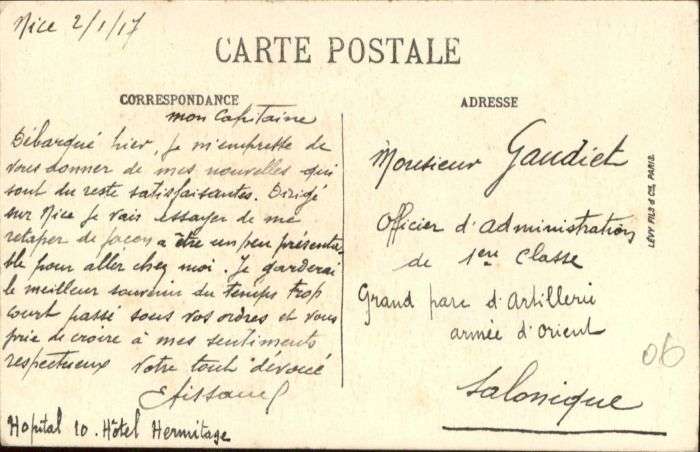 Nice 2/1/17
CARTE POSTALE
CORRESPONDANCE
mon Capitaine
Débarqué hier, je m'empresse de
vous donner de mes nouvelles qui
sont du reste satisfaisantes. Dirigé
sur Nice je vais essayer de me
retaper de façon a être un peu présenta-
ble pour aller chez moi. Je garderai
le meilleur souvenir du temps trop
court passé sous vos ordres et vous
prie de croire à mes sentiments
respectueux Votre tout dévoué
Hopital 10. Hôtel Hermitage
ADRESSE
Monsieur Gaudiet
Officier d'administration
de 1ère Classe
Grand parc d'Artillerie
armée d'orient
Salonique
LÉVY FILS & CIE, PARIS
06